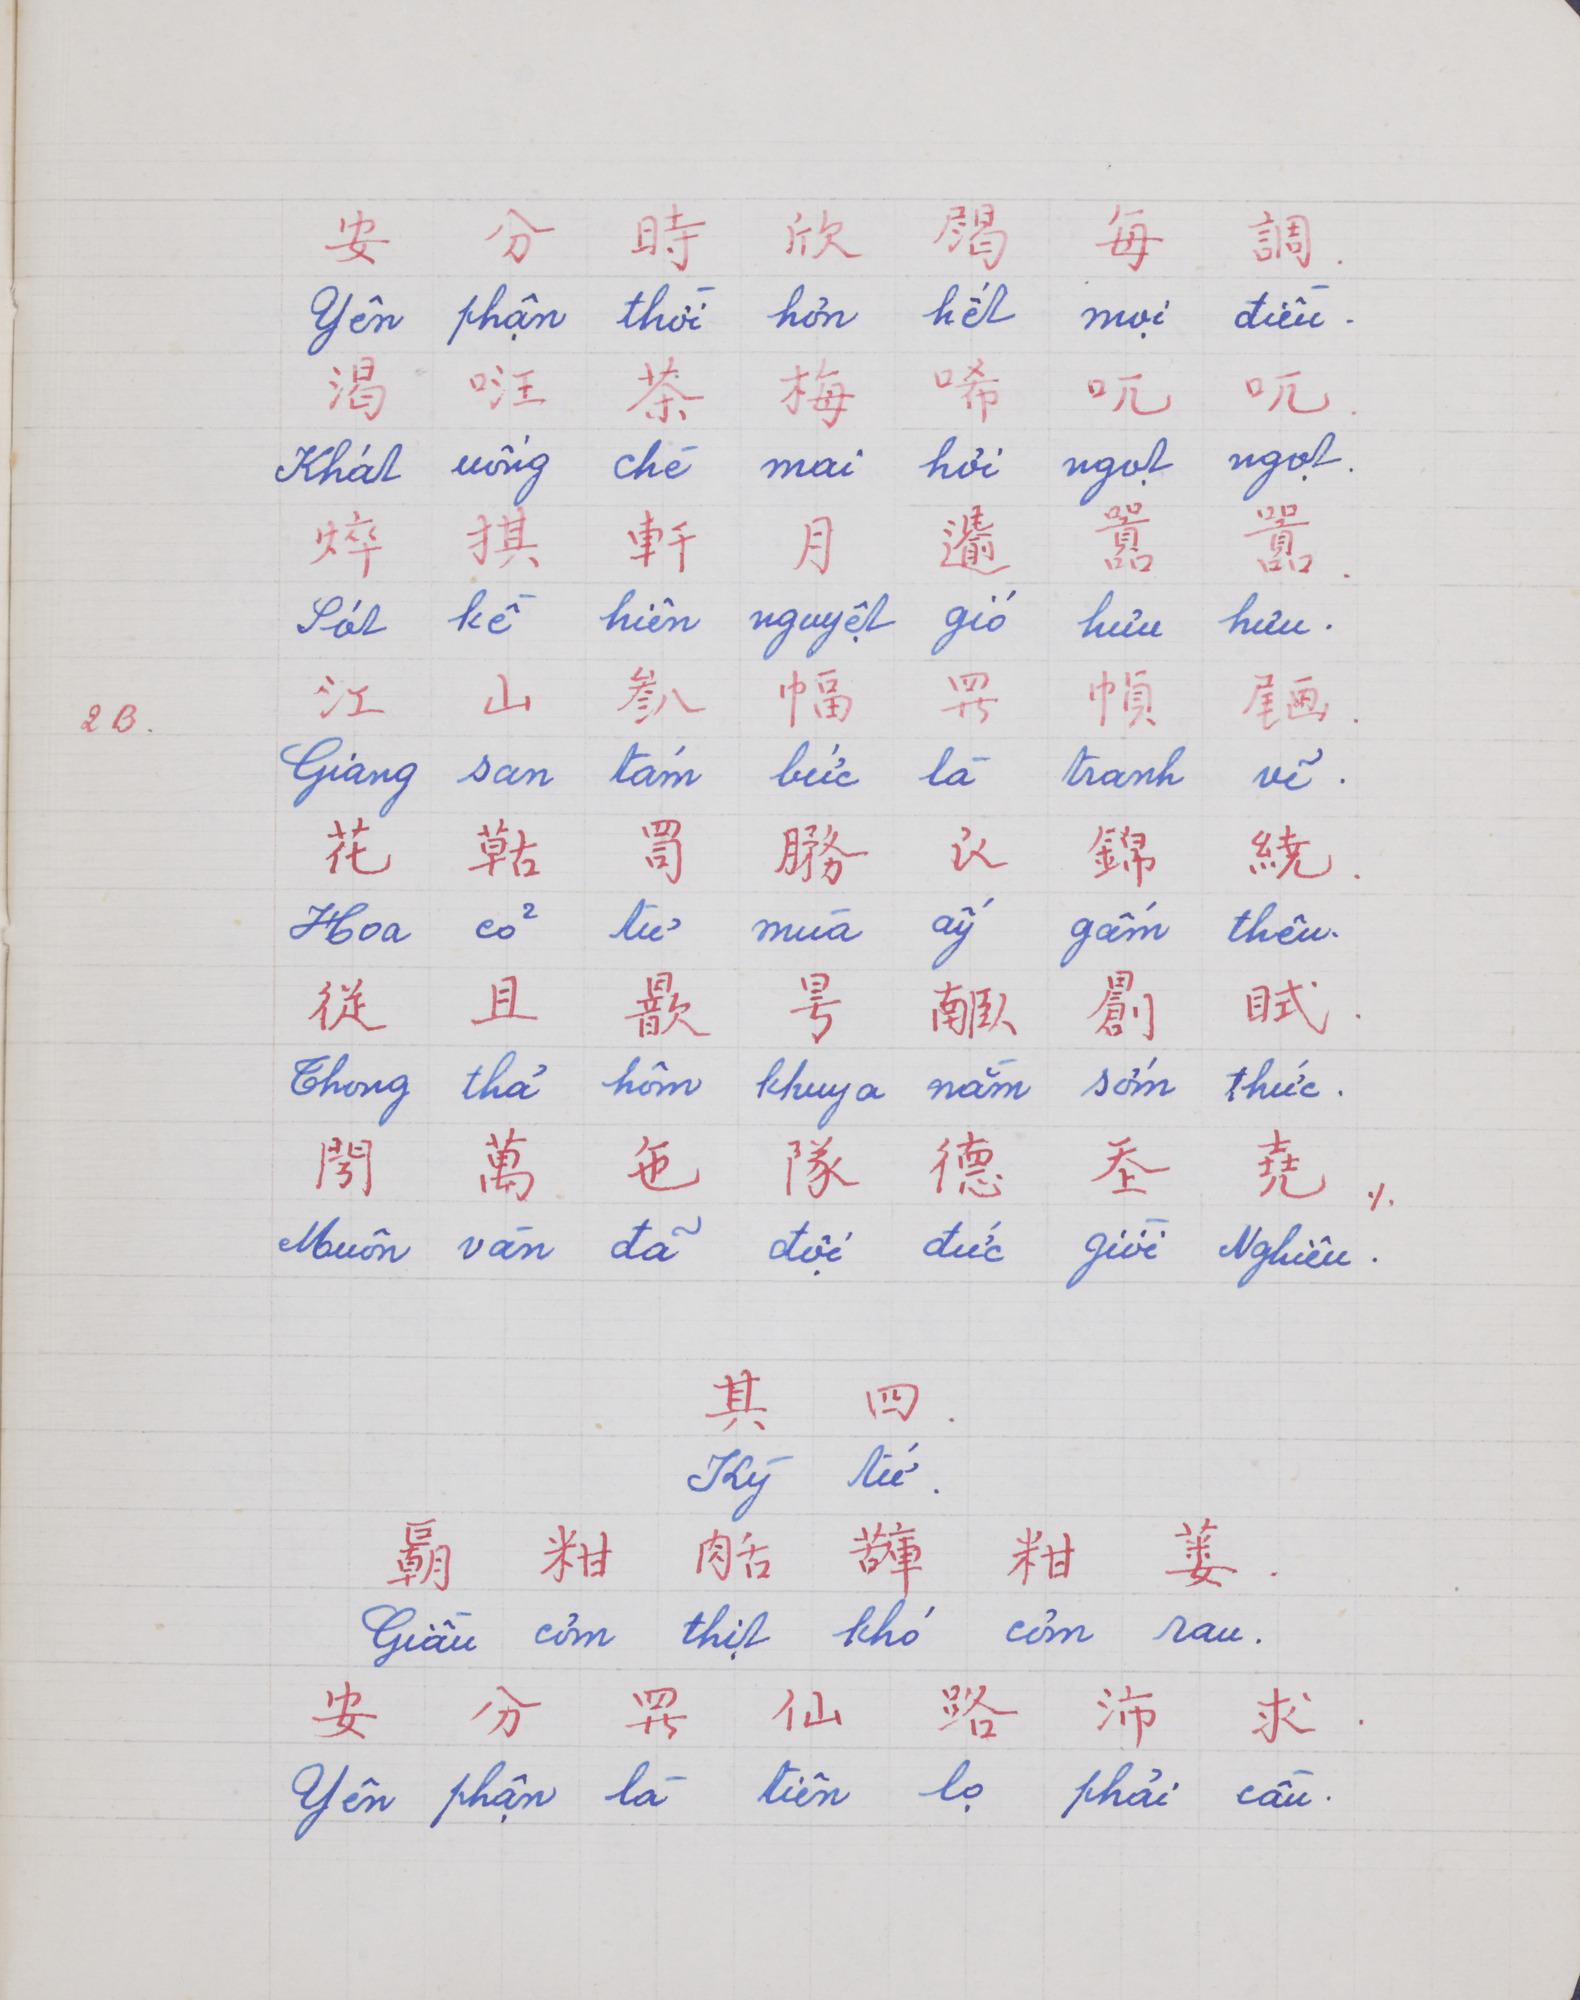 安 分 時 欣 歇 每 調.
Yên phận thời hơn hết mọi điều.
渴 㕵 茶 梅 唏 吭 吭.
Khát uống chè mai hơi ngọt ngọt.
焠 掑 軒 月 𨗺 囂 囂.
Sốt kề hiên nguyệt gió hưu hưu.
江 山 𠔭 幅 羅 幀 𡳒.
2B.
Giang san tám bức là tranh vẽ.
花 𦹵 𦊚 務 𧘇 錦 繞.
Hoa cỏ tư mùa ấy gấm thêu.
從 且 歆 号 𦣰 𠓇 眓.
Thong thả hôm khuya nằm sớm thức.
閍 萬 㐌 隊 德 𡗶 堯 ٪
Muôn vàn đã đội đức giời Nghiêu.
其 四.
Kỳ tứ.
覇 粓 𦧘 𦼜 粓 蔞.
Giầu cơm thịt khó cơm rau.
安 分 羅 仙 路 沛 求.
Yên phận là tiên lọ phải cầu.